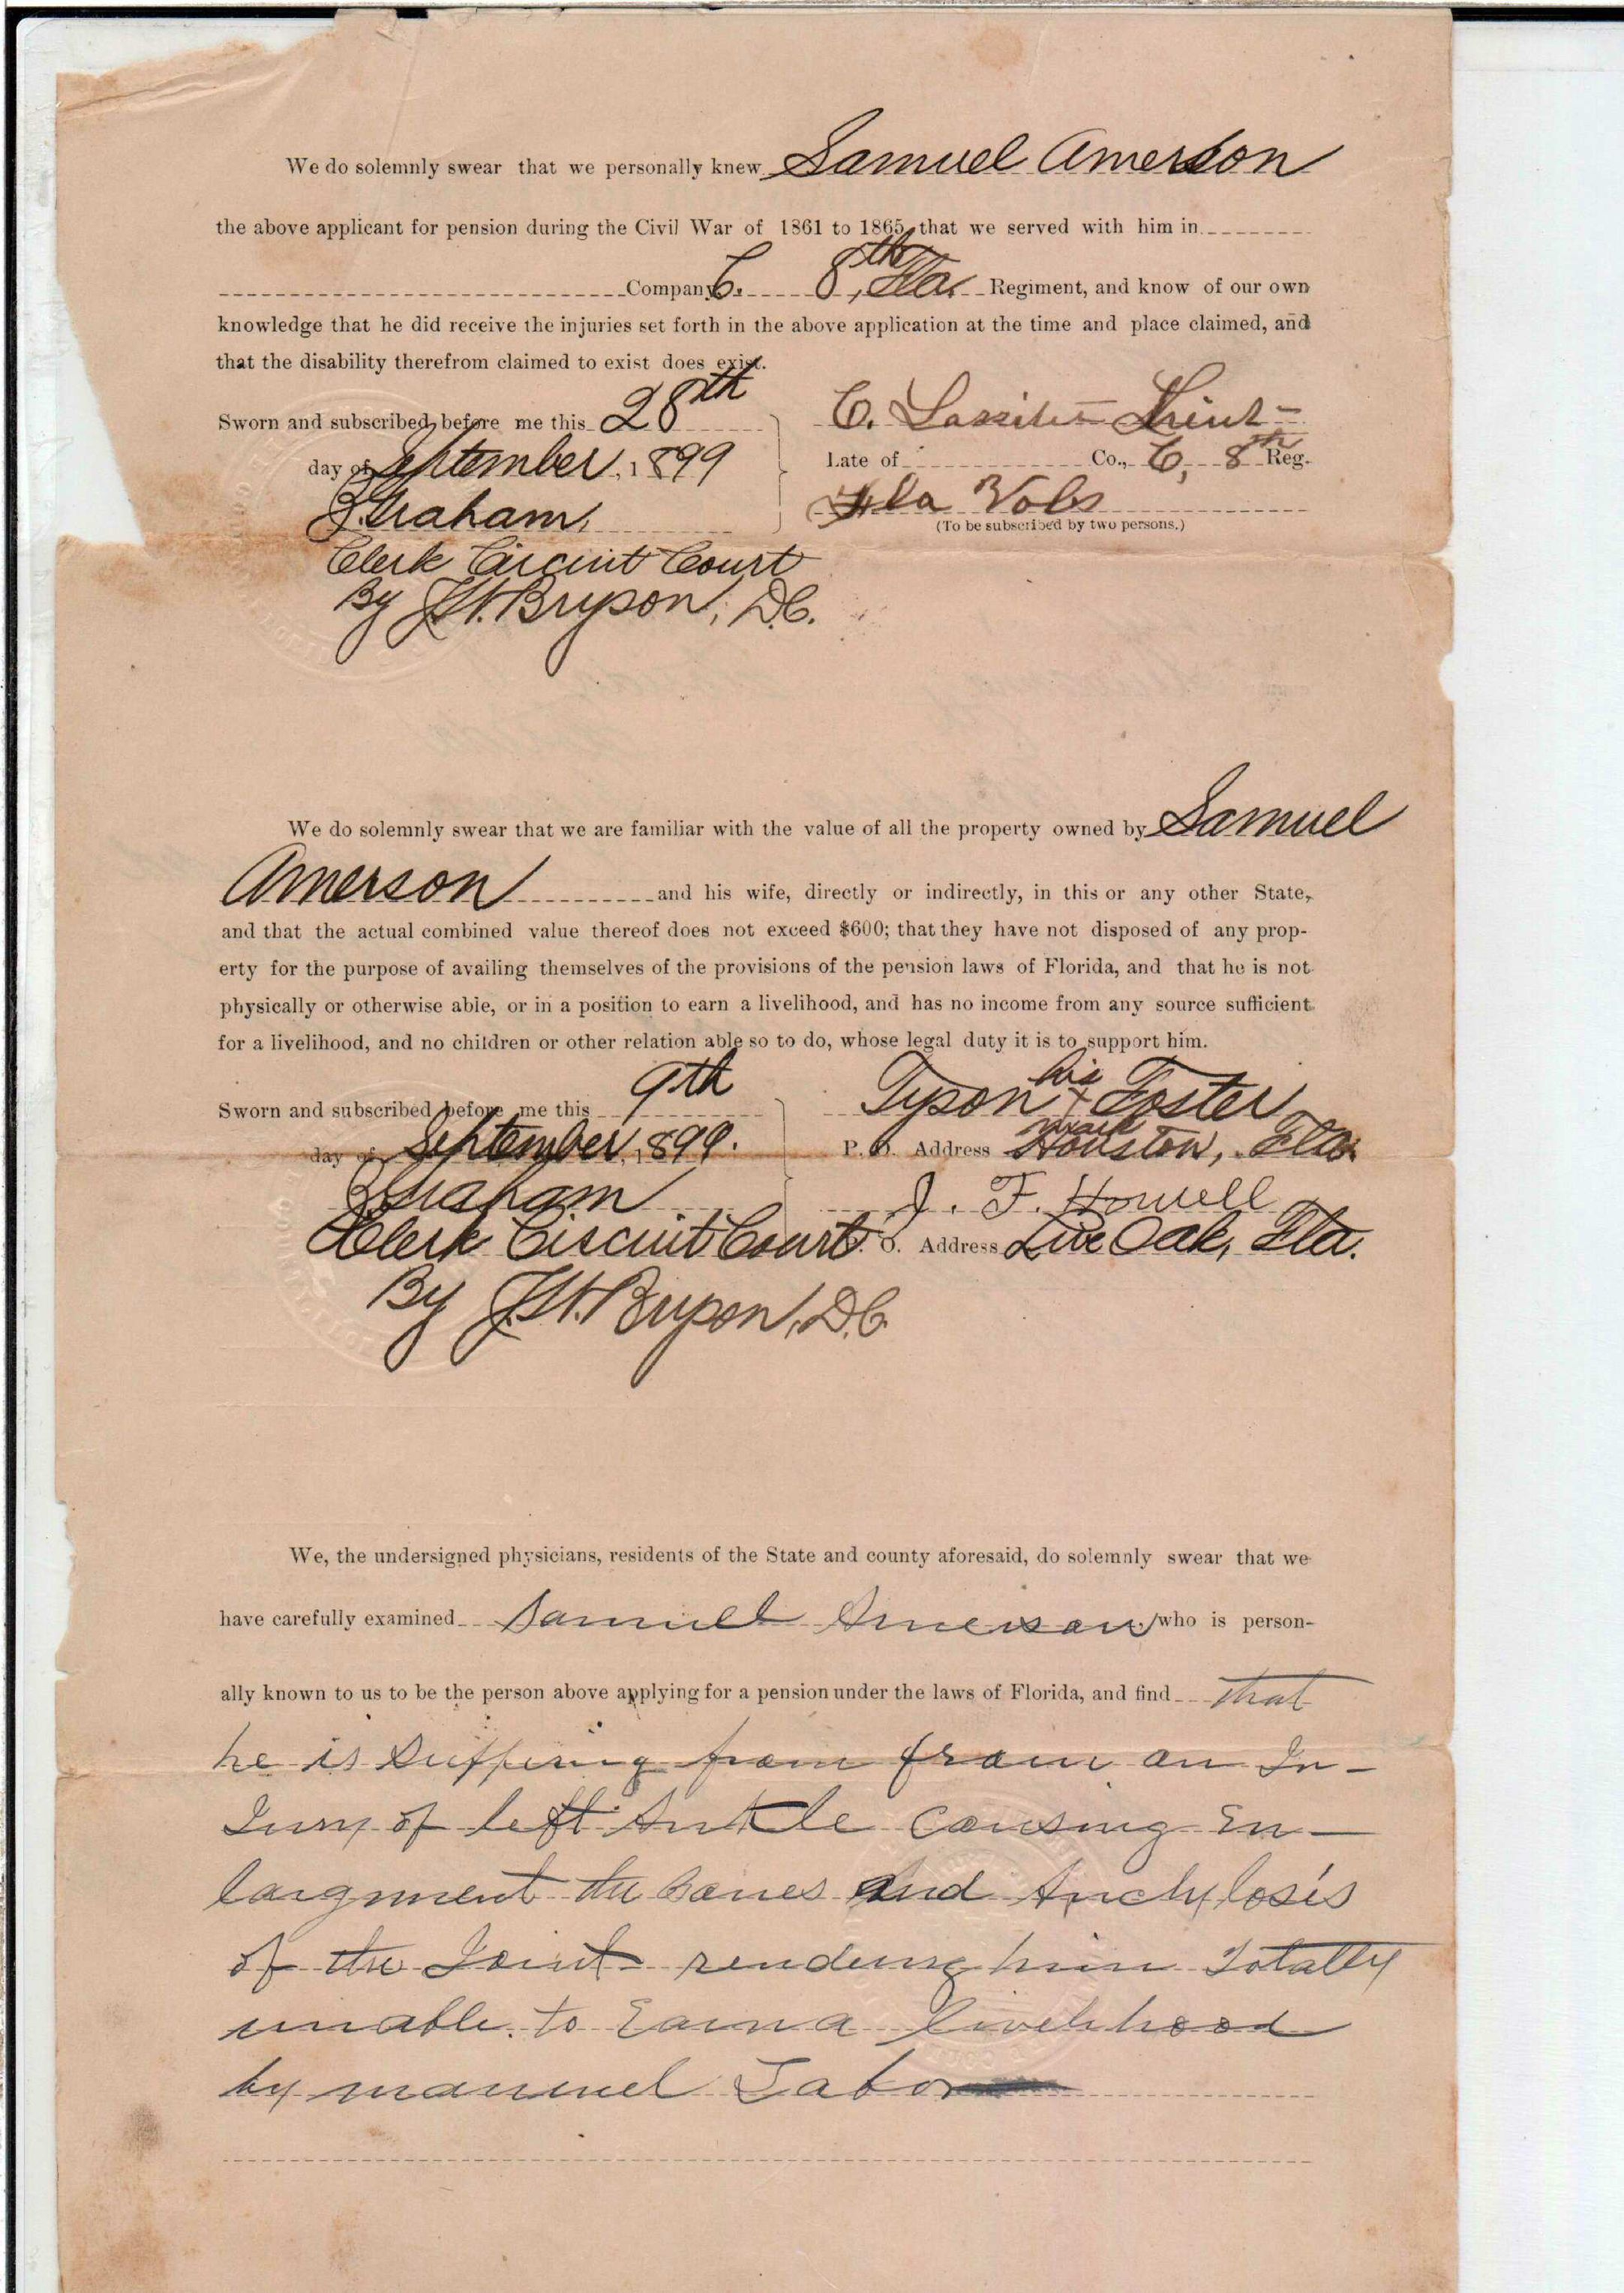 We do solemnly swear that we personally knew Samuel Amerson
the above applicant for pension during the Civil War of 1861 to 1865, that we served with him in
Company C. 8th, Fla. Regiment, and know of our own
knowledge that he did receive the injuries set forth in the above application at the time and place claimed, and
that the disability therefrom claimed to exist does exist.
Sworn and subscribed before me this 28th
day of September, 1899
Graham,
Clerk Circuit Court
By Bryson, D.C.
C. Lassiter Lieut
Late of Co., C, 8th Reg.
Fla Vols
(To be subscribed by two persons.)
We do solemnly swear that we are familiar with the value of all the property owned by Samuel
Amerson and his wife, directly or indirectly, in this or any other State,
and that the actual combined value thereof does not exceed $600; that they have not disposed of any prop-
erty for the purpose of availing themselves of the provisions of the pension laws of Florida, and that he is not
physically or otherwise able, or in a position to earn a livelihood, and has no income from any source sufficient
for a livelihood, and no children or other relation able so to do, whose legal duty it is to support him.
Sworn and subscribed before me this 9th
day of September, 1899.
Graham
Clerk Circuit Court
By Bryson, D.C.
his
Tyson x Foster
mark
P. O. Address Houston, Fla.
J. F. Howell
O. Address Live Oak, Fla.
We, the undersigned physicians, residents of the State and county aforesaid, do solemnly swear that we
have carefully examined Samuel Amerson who is person-
ally known to us to be the person above applying for a pension under the laws of Florida, and find that
he is suffering from from an In-
Jury of left Ankle Causing En-
largment the Bones And Anchylosis
of the Joint rendering him Totally
unable to Earn a livelihood
by manuel Labor